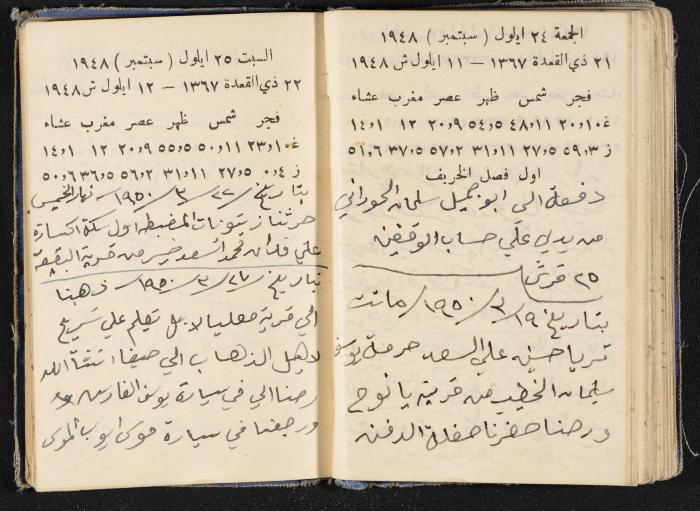 الجمعة ٢٤ ايلول ( سبتمبر ) ١٩٤٨
٢١ ذي القعدة ١٣٦٧ — ١١ ايلول ش ١٩٤٨
فجر شمس ظهر عصر مغرب عشاء
غ ١٠،٢٠ ١١،٤٨ ٥،٥٤ ٩،٢٠ ١٢ ١،١٤
ز ٣،٥٩ ٥،٢٧ ١١،٣١ ٢،٥٧ ٥،٣٧ ٦،٥١
اول فصل الخريف
دفعة الى ابو جميل سلمان الحوراني
من يدي علي حساب الوقفين
٢٥ قرش
بتاريخ ١٩/٣/١٩٥٠ ماتت
ثريا حسن علي السعد حرمة يوسف
سلمان الخطيب من قرية يانوح
ورحنا حضرنا حفلة الدفن
السبت ٢٥ ايلول ( سبتمبر ) ١٩٤٨
٢٢ ذي القعدة ١٣٦٧ — ١٢ ايلول ش ١٩٤٨
فجر شمس ظهر عصر مغرب عشاء
غ ١٠،٢٣ ١١،٥٠ ٥،٥٥ ٩،٢٠ ١٢ ١،١٤
ز ٤،٠ ٥،٢٧ ١١،٣١ ٢،٥٦ ٥،٣٦ ٦،٥٠
بتاريخ ٢٣/٣/١٩٥٠ نهار الخميس
حرثنا زيتونات المضبطه اول سكة اكسارة
علي فدان محمد اسعد خير من قرية البقيعة
بتاريخ ٢٧/٣/١٩٥٠ ذهبنا
الى قرية معليا لاجل تعلم علي تسريح
لاهل الذهاب الى حيفا انشاالله
رحنا الي في سيارة يوسف الفارس
ورجعنا في سيارة موسى ايوب الموسى